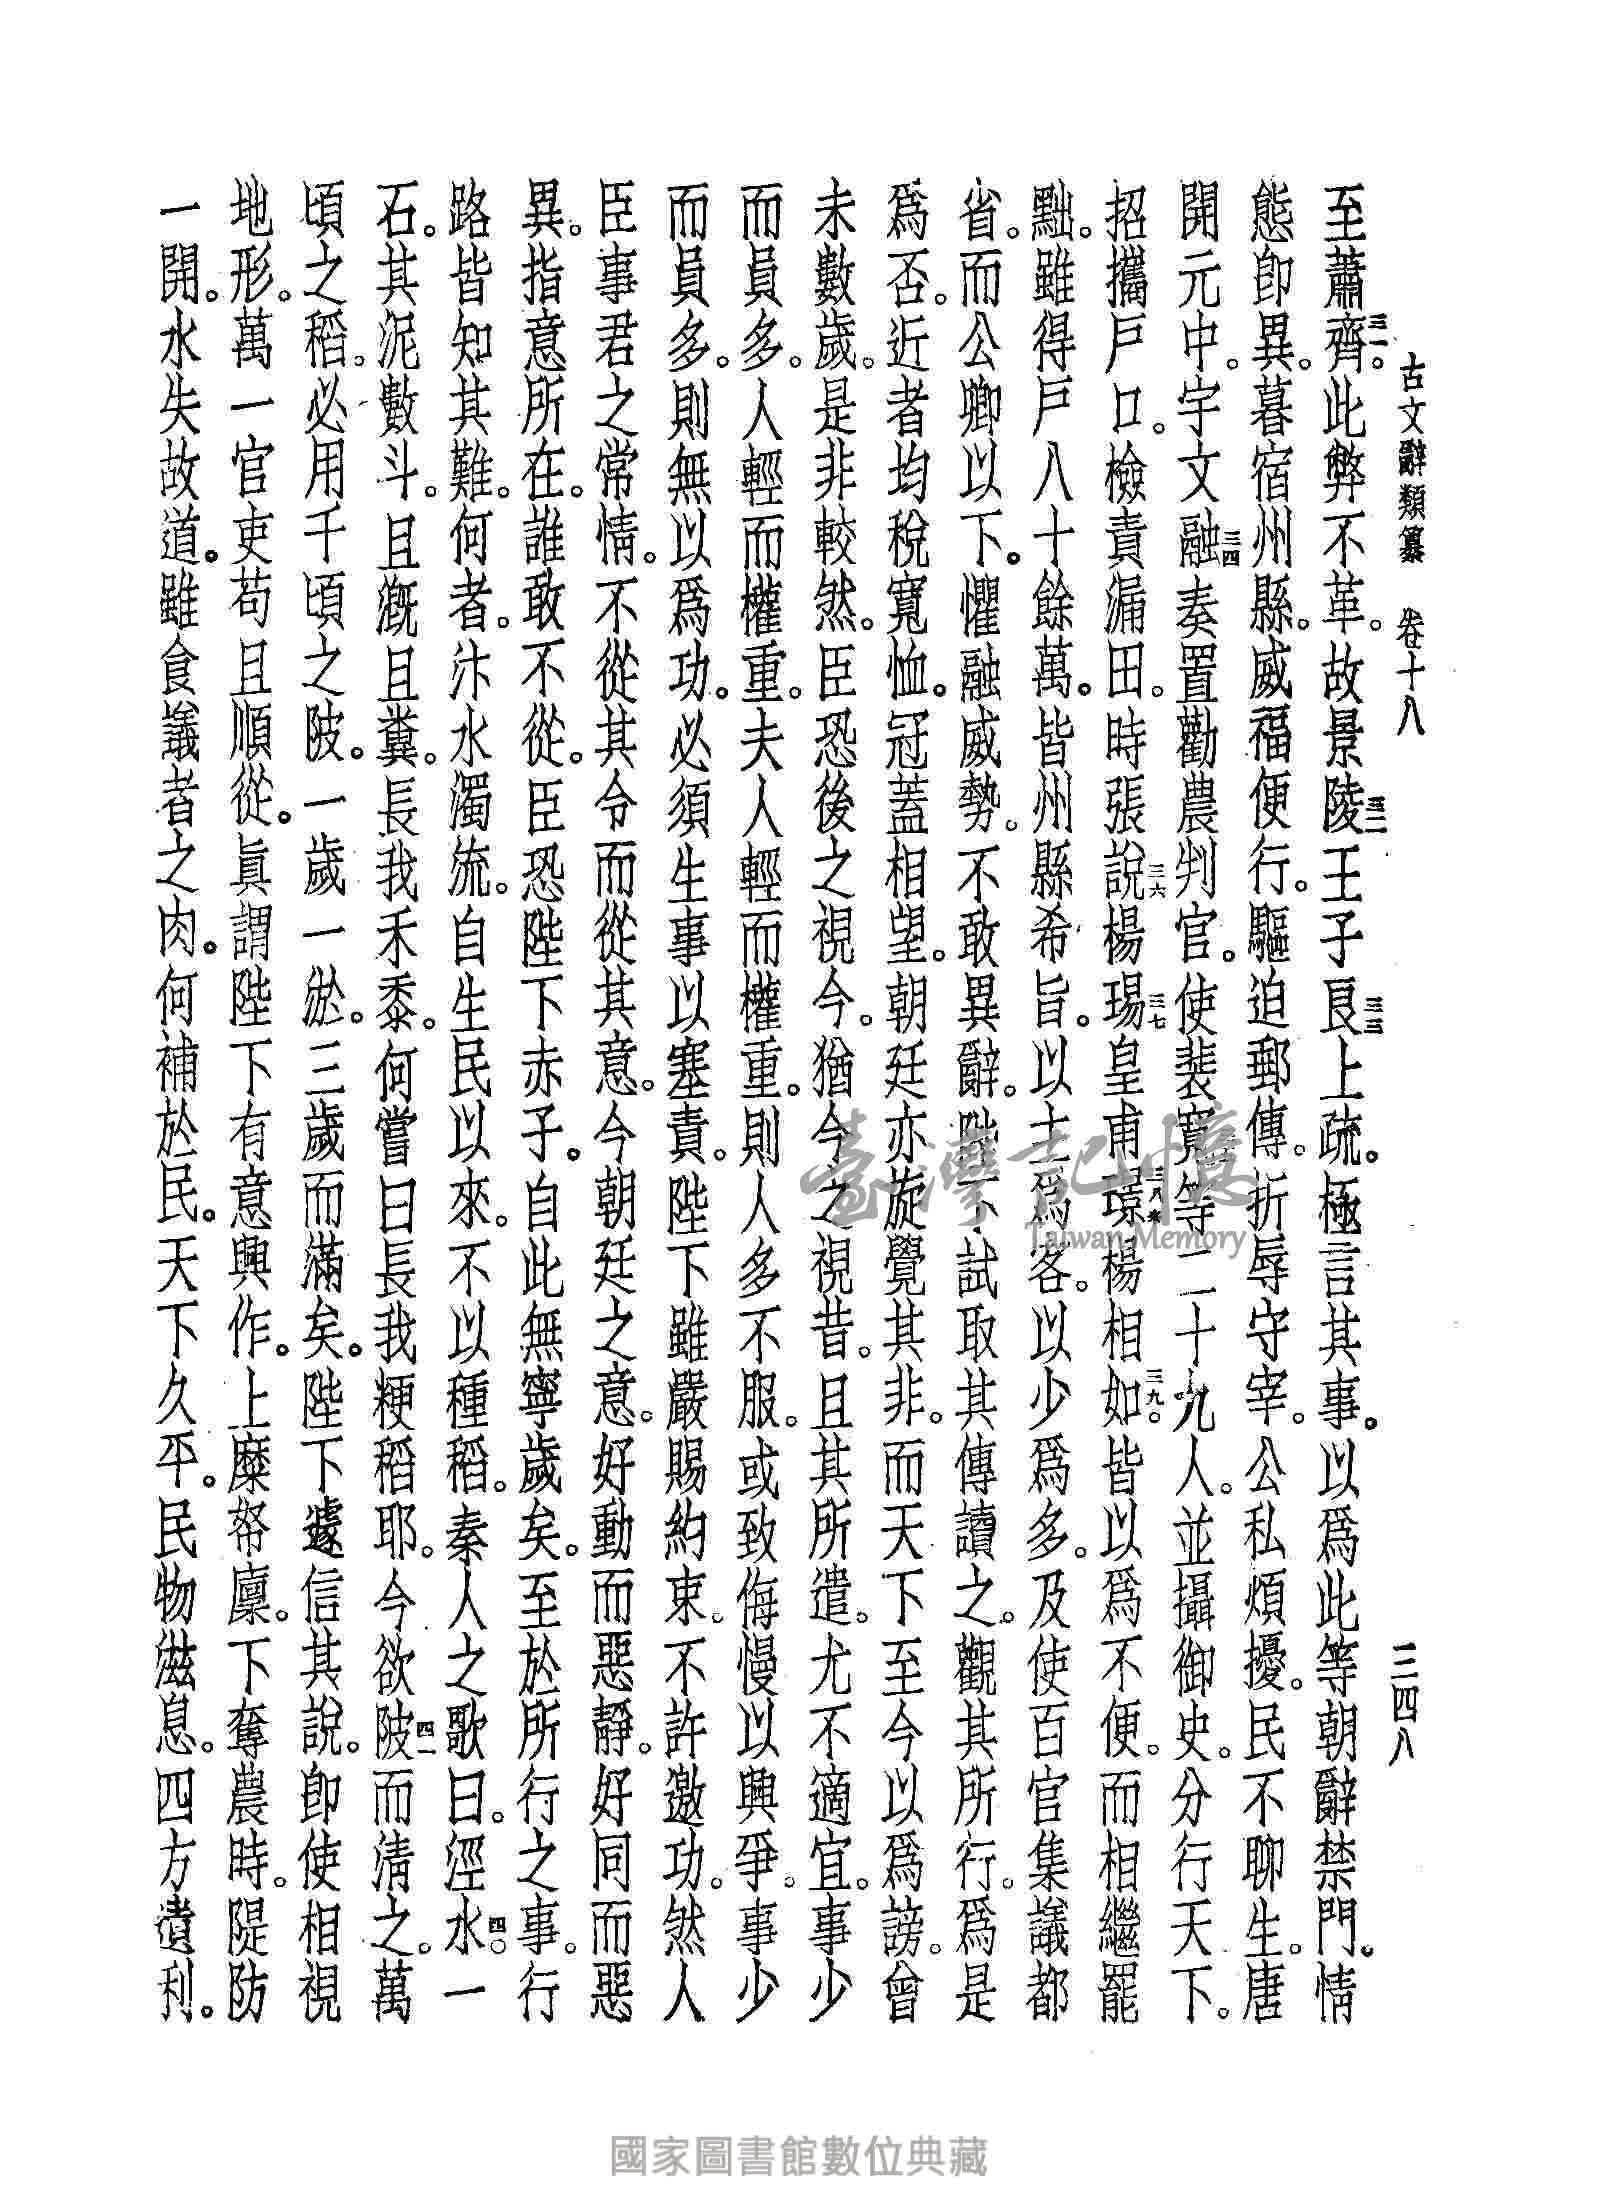 古文辭類纂　卷十八　三四八
至蕭齊三一。此弊不革。故景陵三二王子良三三上疏。極言其事。以爲此等朝辭禁門。情
態卽異。暮宿州縣。威福便行。驅迫郵傳。折辱守宰。公私煩擾。民不聊生。唐
開元中。宇文融三四奏置勸農判官。使裴寬等二十九人。並攝御史。分行天下。
招攜戶口。檢責漏田。時張說三六楊瑒三七皇甫璟三八楊相如三九。皆以爲不便。而相繼罷
黜。雖得戶八十餘萬。皆州縣希旨。以主爲客。以少爲多。及使百官集議都
省。而公卿以下。懼融威勢。不敢異辭。陛下試取其傳讀之。觀其所行。爲是
爲否。近者均稅寬恤。冠蓋相望。朝廷亦旋覺其非。而天下至今以爲謗。曾
未數歲。是非較然。臣恐後之視今。猶今之視昔。且其所遣。尤不適宜。事少
而員多。人輕而權重。夫人輕而權重。則人多不服。或致侮慢以興爭。事少
而員多。則無以爲功。必須生事以塞責。陛下雖嚴賜約束。不許邀功。然人
臣事君之常情。不從其令而從其意。今朝廷之意。好動而惡靜。好同而惡
異。指意所在。誰敢不從。臣恐陛下赤子。自此無寧歲矣。至於所行之事。行
路皆知其難。何者。汴水濁流。自生民以來。不以種稻。秦人之歌曰。涇水四〇一
石。其泥數斗。且漑且糞。長我禾黍。何嘗曰長我粳稻耶。今欲陂四一而清之。萬
頃之稻。必用千頃之陂。一歲一淤。三歲而滿矣。陛下遽信其說。卽使相視
地形。萬一官吏苟且順從。眞謂陛下有意興作。上糜帑廩。下奪農時。隄防
一開。水失故道。雖食議者之肉。何補於民。天下久平。民物滋息。四方遺利。
臺灣記憶
Taiwan Memory
國家圖書館數位典藏